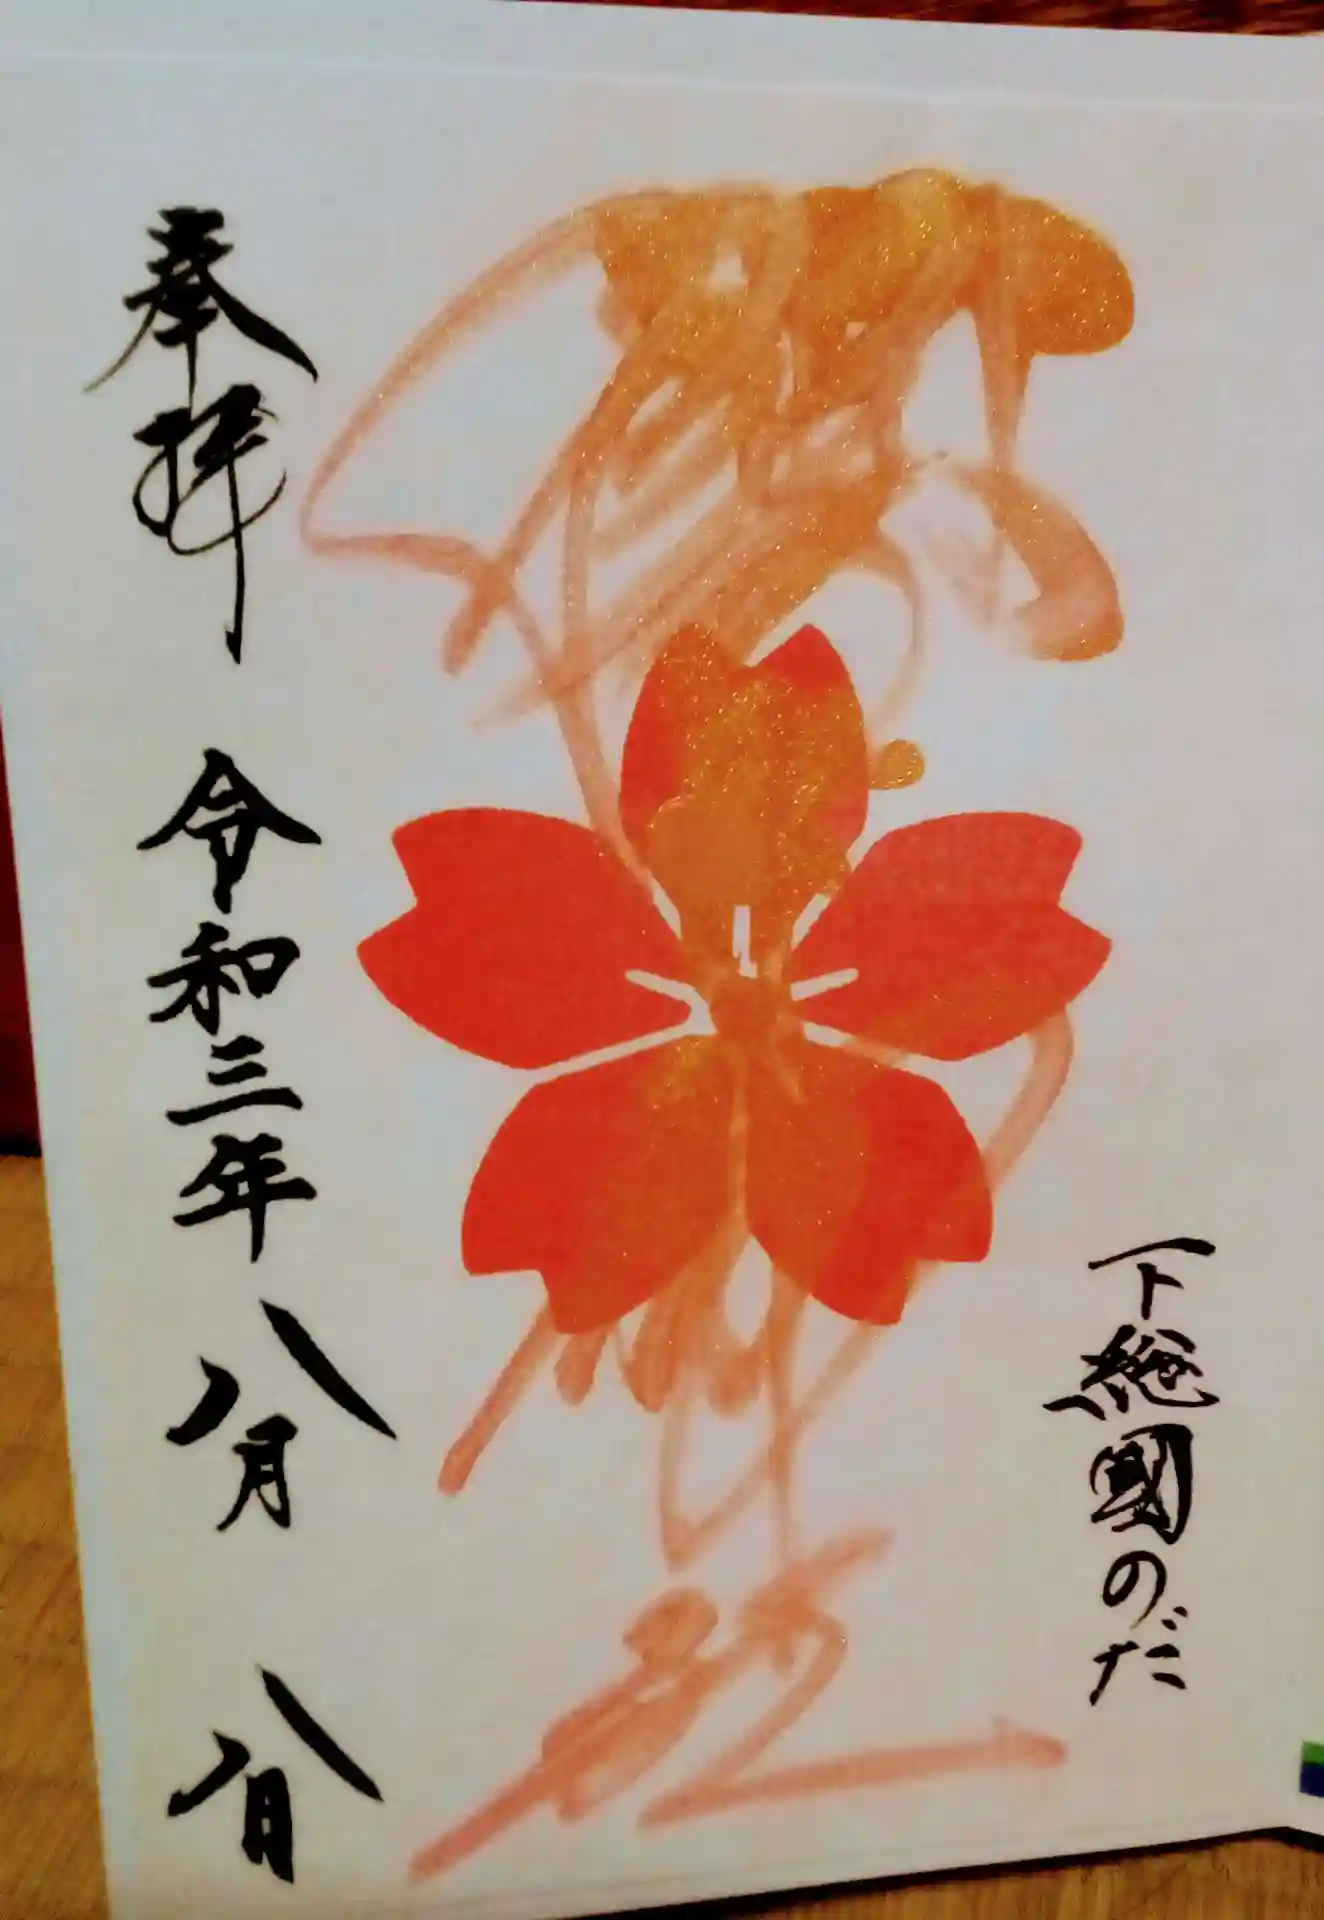 下総國のだ
奉拝 令和三年 八月 八日